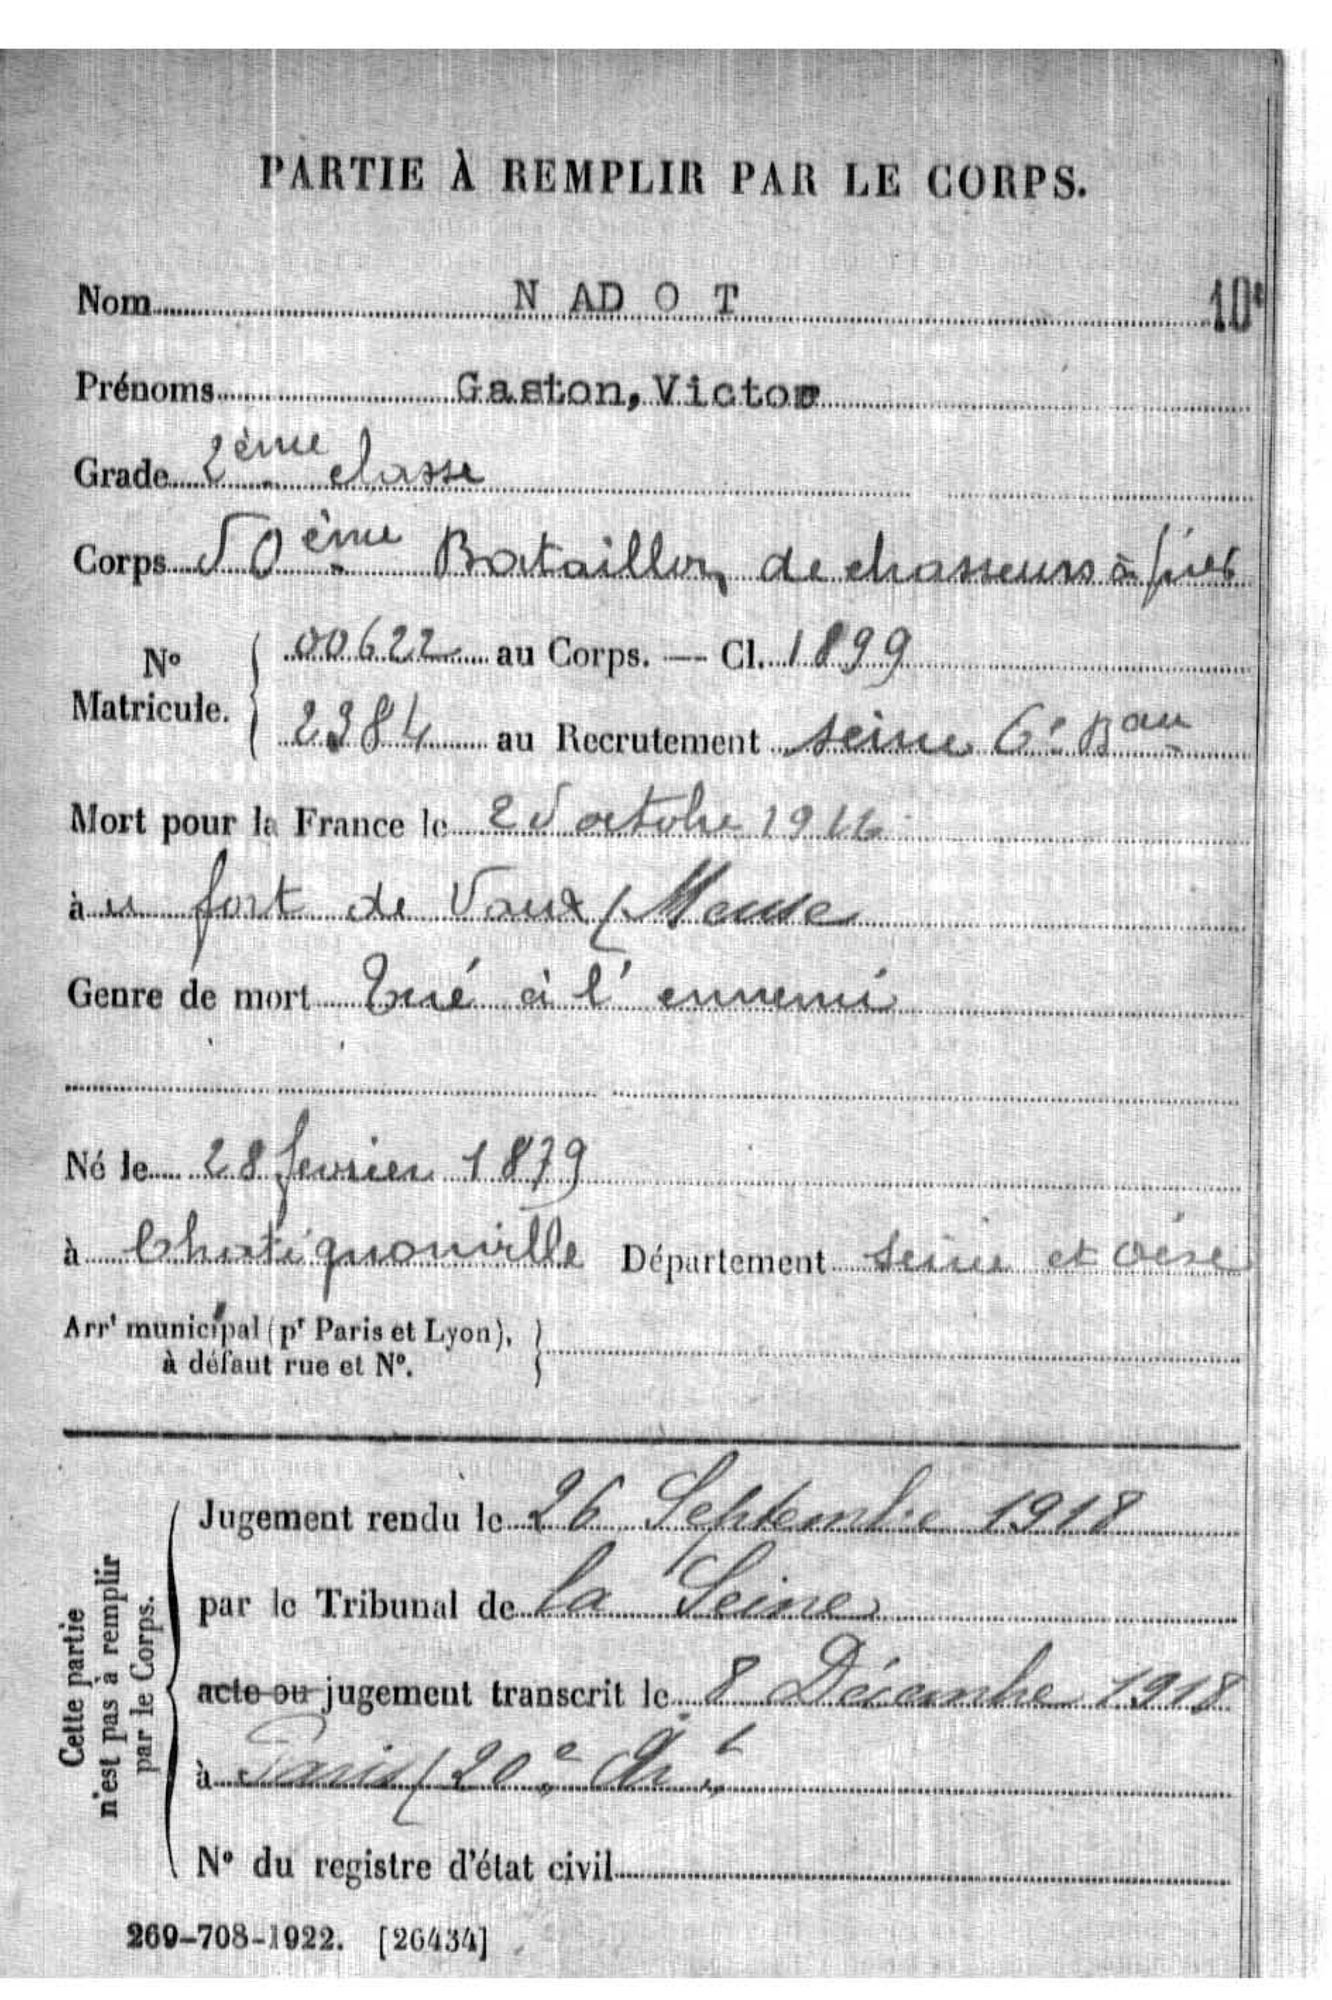 PARTIE À REMPLIR PAR LE CORPS.
Nom NADOT 10e
Prénoms Gaston, Victor
Grade 2ème classe
Corps 50ème Bataillon de chasseurs à pied
No Matricule. { 00622 au Corps. — Cl. 1899
2384 au Recrutement Seine 6e Bau
Mort pour la France le 25 octobre 1916
à u fort de Vaux (Meuse
Genre de mort Tué à l'ennemi
Né le 28 fevrier 1879
à Chatignonville Département Seine et Oise
Arrt municipal (pr Paris et Lyon), à défaut rue et No. }
Cette partie n'est pas à remplir par le Corps.
Jugement rendu le 26 Septembre 1918
par le Tribunal de la Seine
acte ou jugement transcrit le 8 Décembre 1918
à Paris (20e Arrt
No du registre d'état civil
269-708-1922. [26434]